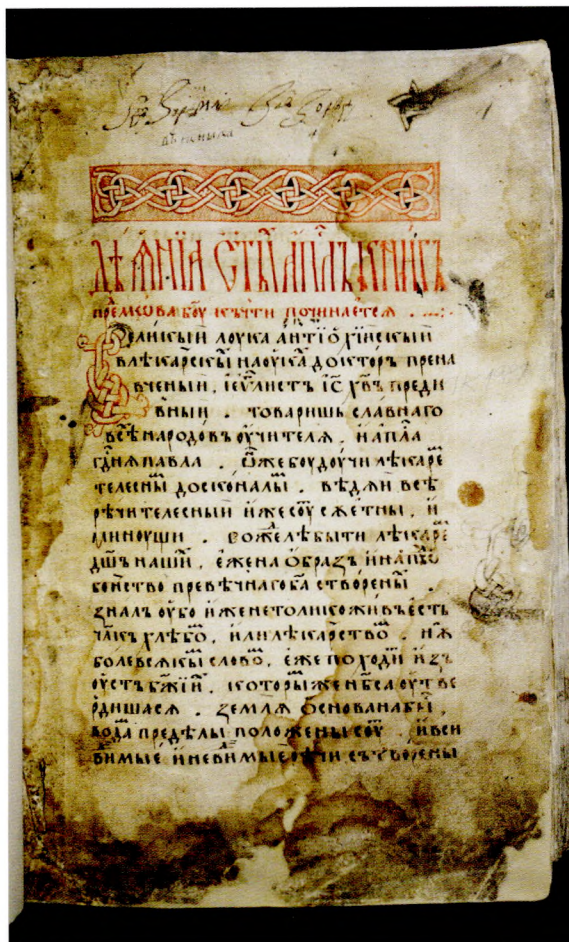 дѣѧ́нїѧ ст҃ы́ а҆пл҃ъ кни́гъ
прем꙽кова боу къ ч꙽ти почина́етсѧ .
Вели́кый лоука а҆нтїѡ҆хїи́нскый
в лѣка́рскы наоу́ка до́кторъ прена
вче́ный . і҆е҆у҃листъ і҆с҃ хв҃ъ преди
вный . това́ришь сла́внаго
всѣ народо́въ оу҆чи́телѧ . и҆ а҆пл҃а
гн҃ѧ па́вла . ѡ҆же боудоу́чи лѣ́каре
теле́сны доскона́лы . вѣ́дѧи всѣ
рѣ́чи теле́сныи и҆же соу сме́тны , и҆
миноу́щи . восхоже́лѣ бы́ти лѣ́каре
дш҃ъ на́ши . е҆же на ѡ҆́бразъ и҆ на по
бе́нство превѣ́чнаго б҃га створе́ны .
зна́лъ оу҆́бо и҆же не то́лико жи́въ е҆́сть
чл҃къ хлѣ́бо , и҆лѝ лѣка́рство . нѧ
бо́ле всѧ́кы сло́во , е҆же похо́ди и҆зъ
оу҆́стъ бж҃їи . кото́рыже нб҃са оу҆тве
рди́шасѧ . землѧ̀ ѡ҆снована́ бы ,
вода̀ предѣ́лы поло́жены соу . и҆ вси
ви́мые и҆ неви́мые рѣ́чи сътворены